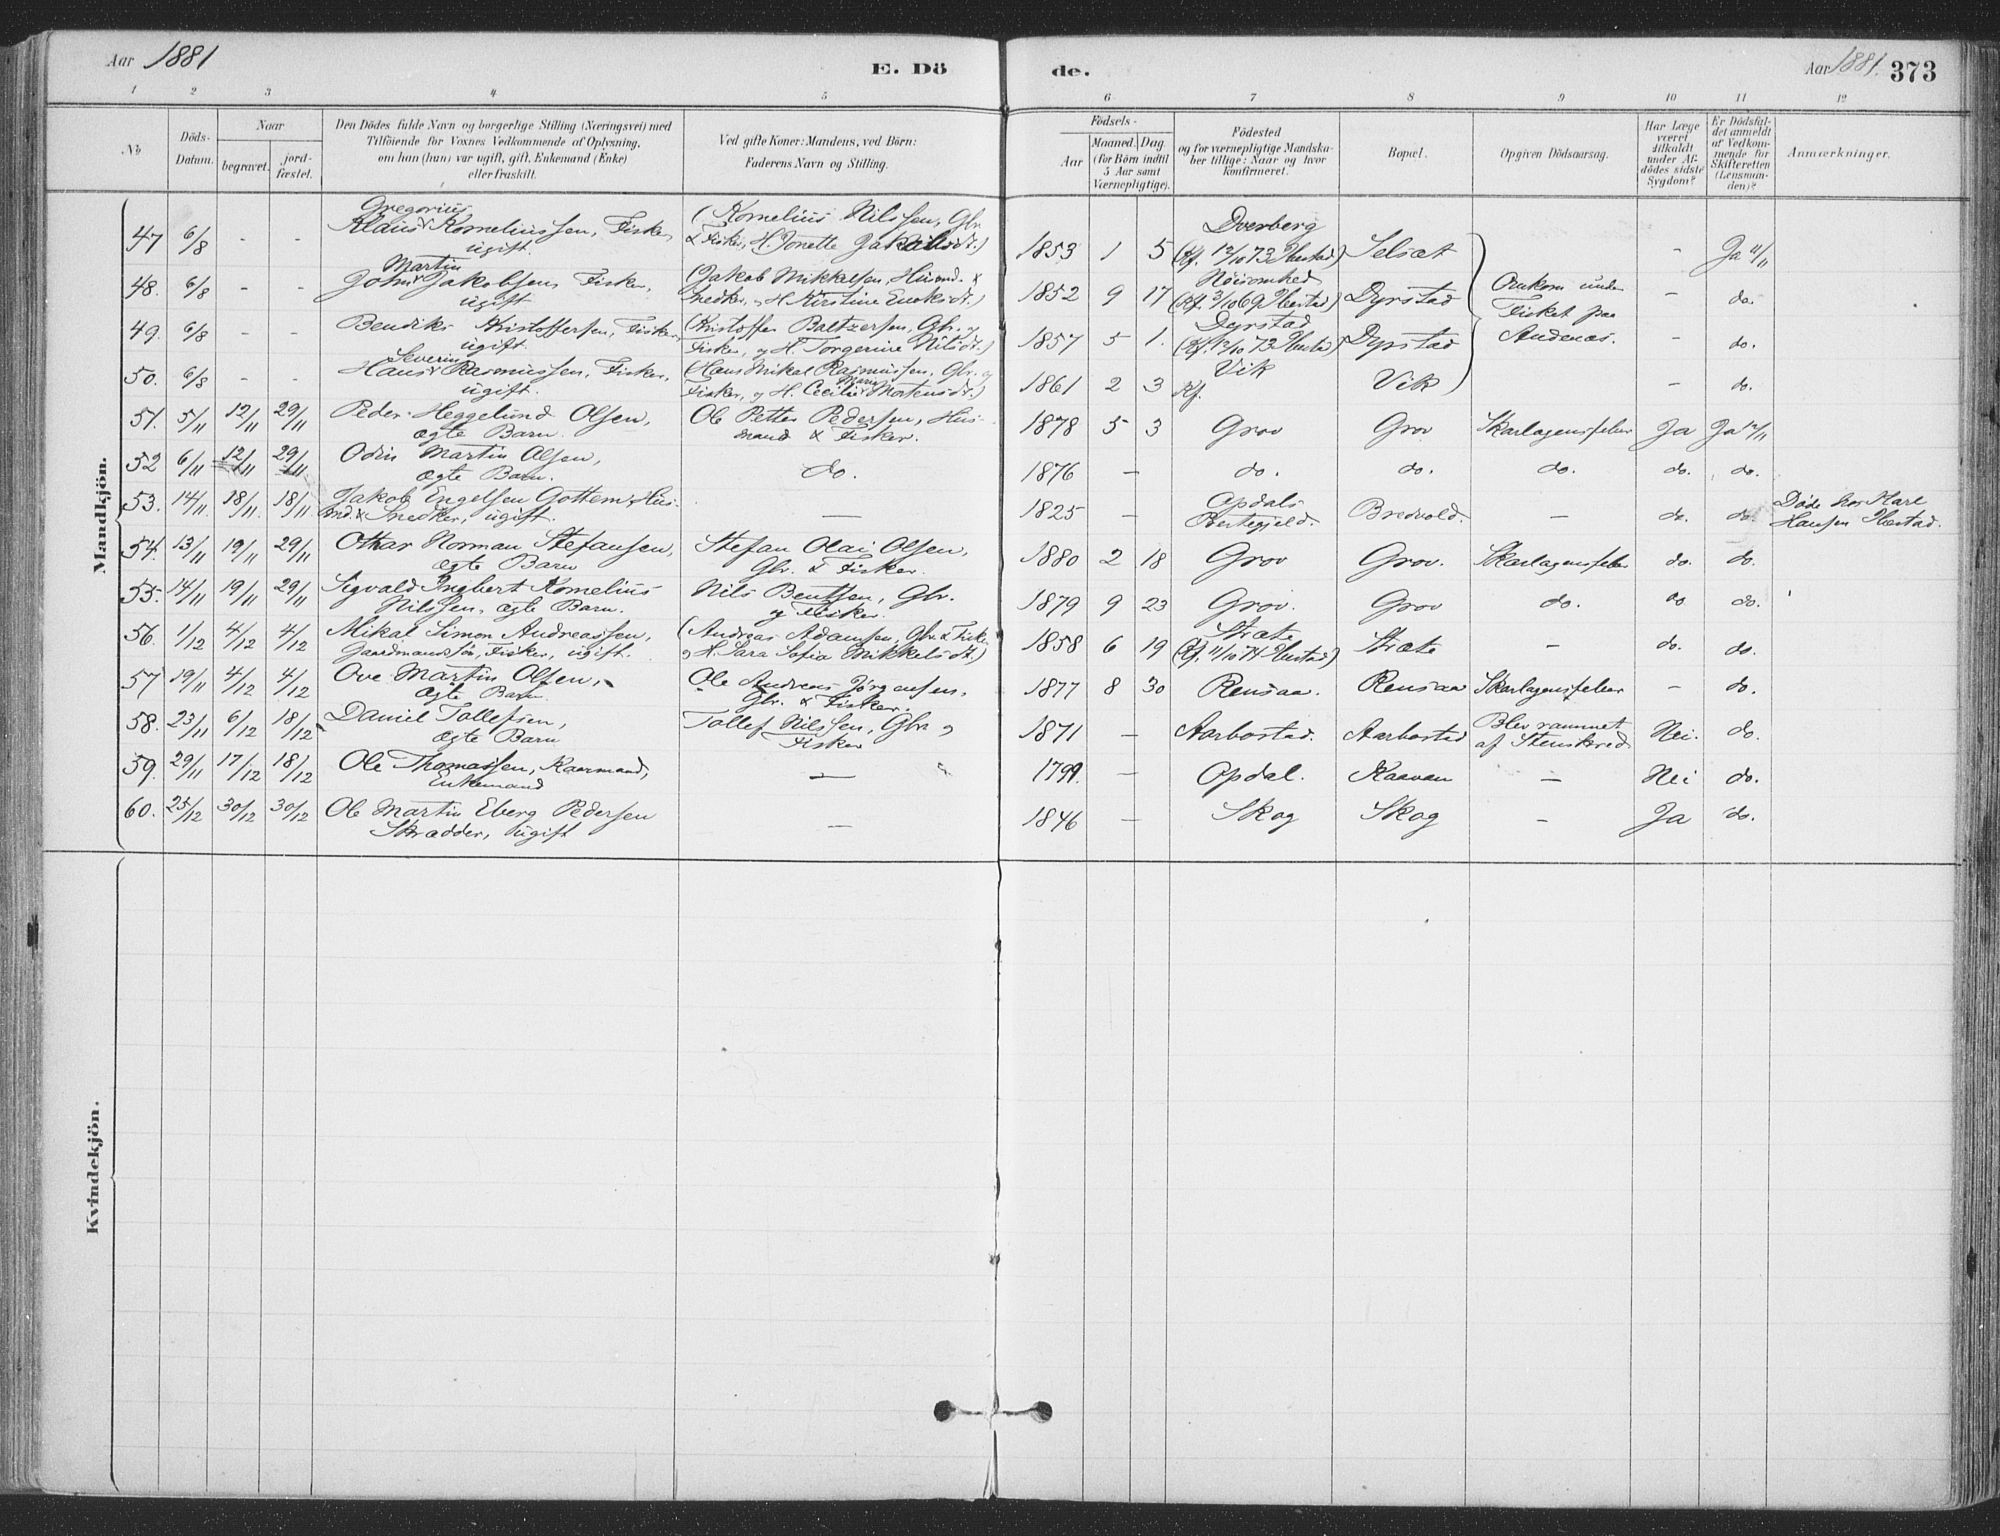 Aar 1881
E. Dö
de.
Aar 1881.
373
1 2 3 4 5 6 7 8 9 10 11 12
No
Döds-Datum.
Naar
begravet.
jord-fæstet.
Den Dödes fulde Navn og borgerlige Stilling (Næringsvei) med
Tilföiende for Voxnes Vedkommende af Oplysning,
om han (hun) var ugift, gift, Enkemand (Enke)
eller fraskilt.
Ved gifte Koner: Mandens, ved Börn:
Faderens Navn og Stilling.
Födsels-
Aar
Maaned. Dag
(for Börn indtil
5 Aar samt
Værnepligtige).
Födested
og for værnepligtige Mandska-
ber tillige: Naar og hvor
konfirmeret.
Bopæl.
Opgiven Dödsaarsag.
Har Læge
været
tilkaldt
under Af-
dödes sidste
Sygdom?
Er Dödsfal-
det anmeldt
af Vedkom-
mende for
Skifteretten
(Lensman-
den)?
Anmærkninger.
Mandkjön.
Gregorius
47 6/8 - - Klaus Korneliussen, Fisker, (Kornelius Nilssen, Gbr. Dverberg
ugift. & Fisker, H. Jonette Jakobsdt.) 1853 1 5 (Kf. 12/10 73 Ibestad) Selsæt - Ja 11/11
Martin
48. 6/8 - - John Jakobsen, Fisker, (Jakob Mikkelsen, Husmd. & Nöisomhed
ugift Snedker, & H. Kirstine Enoksdt.) 1852 9 17 (Kf. 3/10 69 Ibestad) Dyrstad Omkom under - do.
49. 6/8 - - Bendiks Kristoffersen, Fisker, (Kristoffer Baltzersen, Gbr. og Dyrstad Fisket paa
ugift. Fisker, og H. Torgerine Nilsdt.) 1857 5 1. (Kf. 12/10 73 Ibestad) Dyrstad Andenæs. - do.
Severin
50. 6/8 - - Hans Rasmussen, Fisker, (Hans Mikal Rasmussen, Gbr. og Vik
ugift. Fisker, og H. Cecilie Marie Mortensdt.) 1861 2 3 Kf. Vik - do.
51. 5/11 12/11 29/11 Peder Heggelund Olsen, Ole Petter Pedersen, Hus-
ægte Barn. mand & Fisker. 1878 5 3 Grov Grov Skarlagensfeber Ja Ja 12/11
52 6/11 12/11 29/11 Odin Martin Olsen,
ægte Barn. do. 1876 - do. do. do. do. do.
53. 14/11 18/11 18/11 Jakob Engelsen Gottem, Hus- Opdals Döde hos Karl
md. & Snedker, ugift. — 1825 - Præstegjeld. Bredvold. - do. do. Hansen Ibestad.
54. 13/11 19/11 29/11 Othar Norman Stefansen, Stefan Olai Olsen,
ægte Barn Gbr. & Fisker. 1880 2 18 Grov Grov. Skarlagensfeber do. do.
55. 14/11 19/11 29/11 Sigvald Ingbert Kornelius Nils Bentsen, Gbr.
Nilssen, ægte Barn. og Fisker. 1879 9 23 Grov. Grov do. do do.
56. 1/12 4/12 4/12 Mikal Simon Andreassen, (Andreas Adamsen, Gbr. & Fisker Stræte
Gaardmandssön, Fisker, ugift. og H. Sara Sofia Mikkelsdt.) 1858 6 19 (Kf. 11/10 74 Ibestad) Stræte - do. do.
57 19/11 4/12 4/12 Ove Martin Olsen, Ole Andreas Jörgensen,
ægte Barn Gbr. & Fisker. 1877 8 30 Rensaa. Rensaa Skarlagensfeber - do.
58. 23/11 6/12 18/12 Daniel Tollefsen, Tollef Nilssen, Gbr. og Blev rammet
ægte Barn Fisker 1871 - Aarbostad. Aarbostad af Stenskred Nei. do.
59. 29/11 17/12 18/12 Ole Thomassen, Kaarmand,
Enkemand — 1799. - Opdal. Kaavan - Nei do.
60. 25/12 30/12 30/12 Ole Martin Eberg Pedersen
Skrædder, ugift — 1846 - Skog Skog - Ja do.
Kvindekjön.